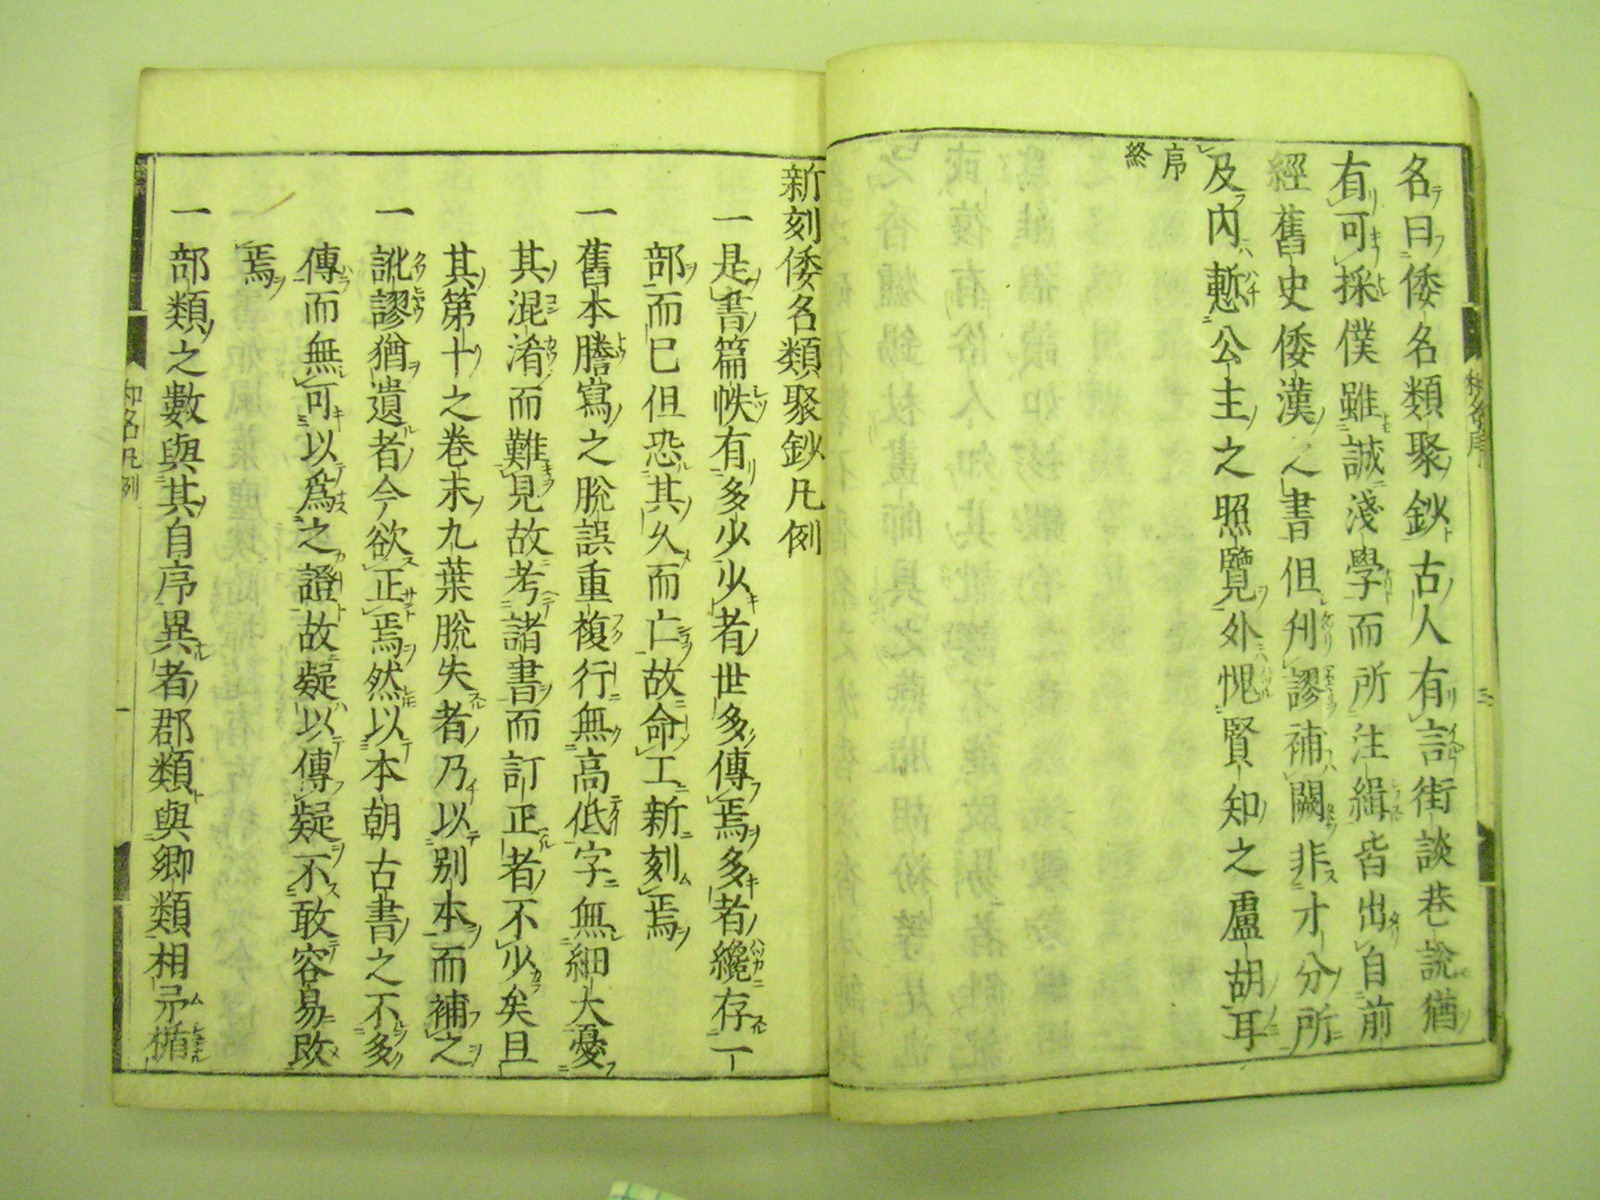 名曰倭名類聚鈔古人有言街談巷說猶
有可採僕雖誠淺學而所注緝皆出自前
經舊史倭漢之書但刋謬補闕非才分所
及內慙公主之照覽外愧賢知之盧胡耳
序
終
新刻倭名類聚鈔凡例
一是書篇帙有多少少者世多傳焉多者纔存一
部而已但恐其久而亡故命工新刻焉
一舊本謄寫之脫誤重複行無高低字無細大憂
其混淆而難見故考諸書而訂正者不少矣且
其第十之卷末九葉脫失者乃以别本而補之
一訛謬猶遺者今欲正焉然以本朝古書之不多
傳而無可以爲之證故疑以傳疑不敢容易改
焉
一部類之數與其自序異者郡類與鄉類相矛楯
和名凡例
一